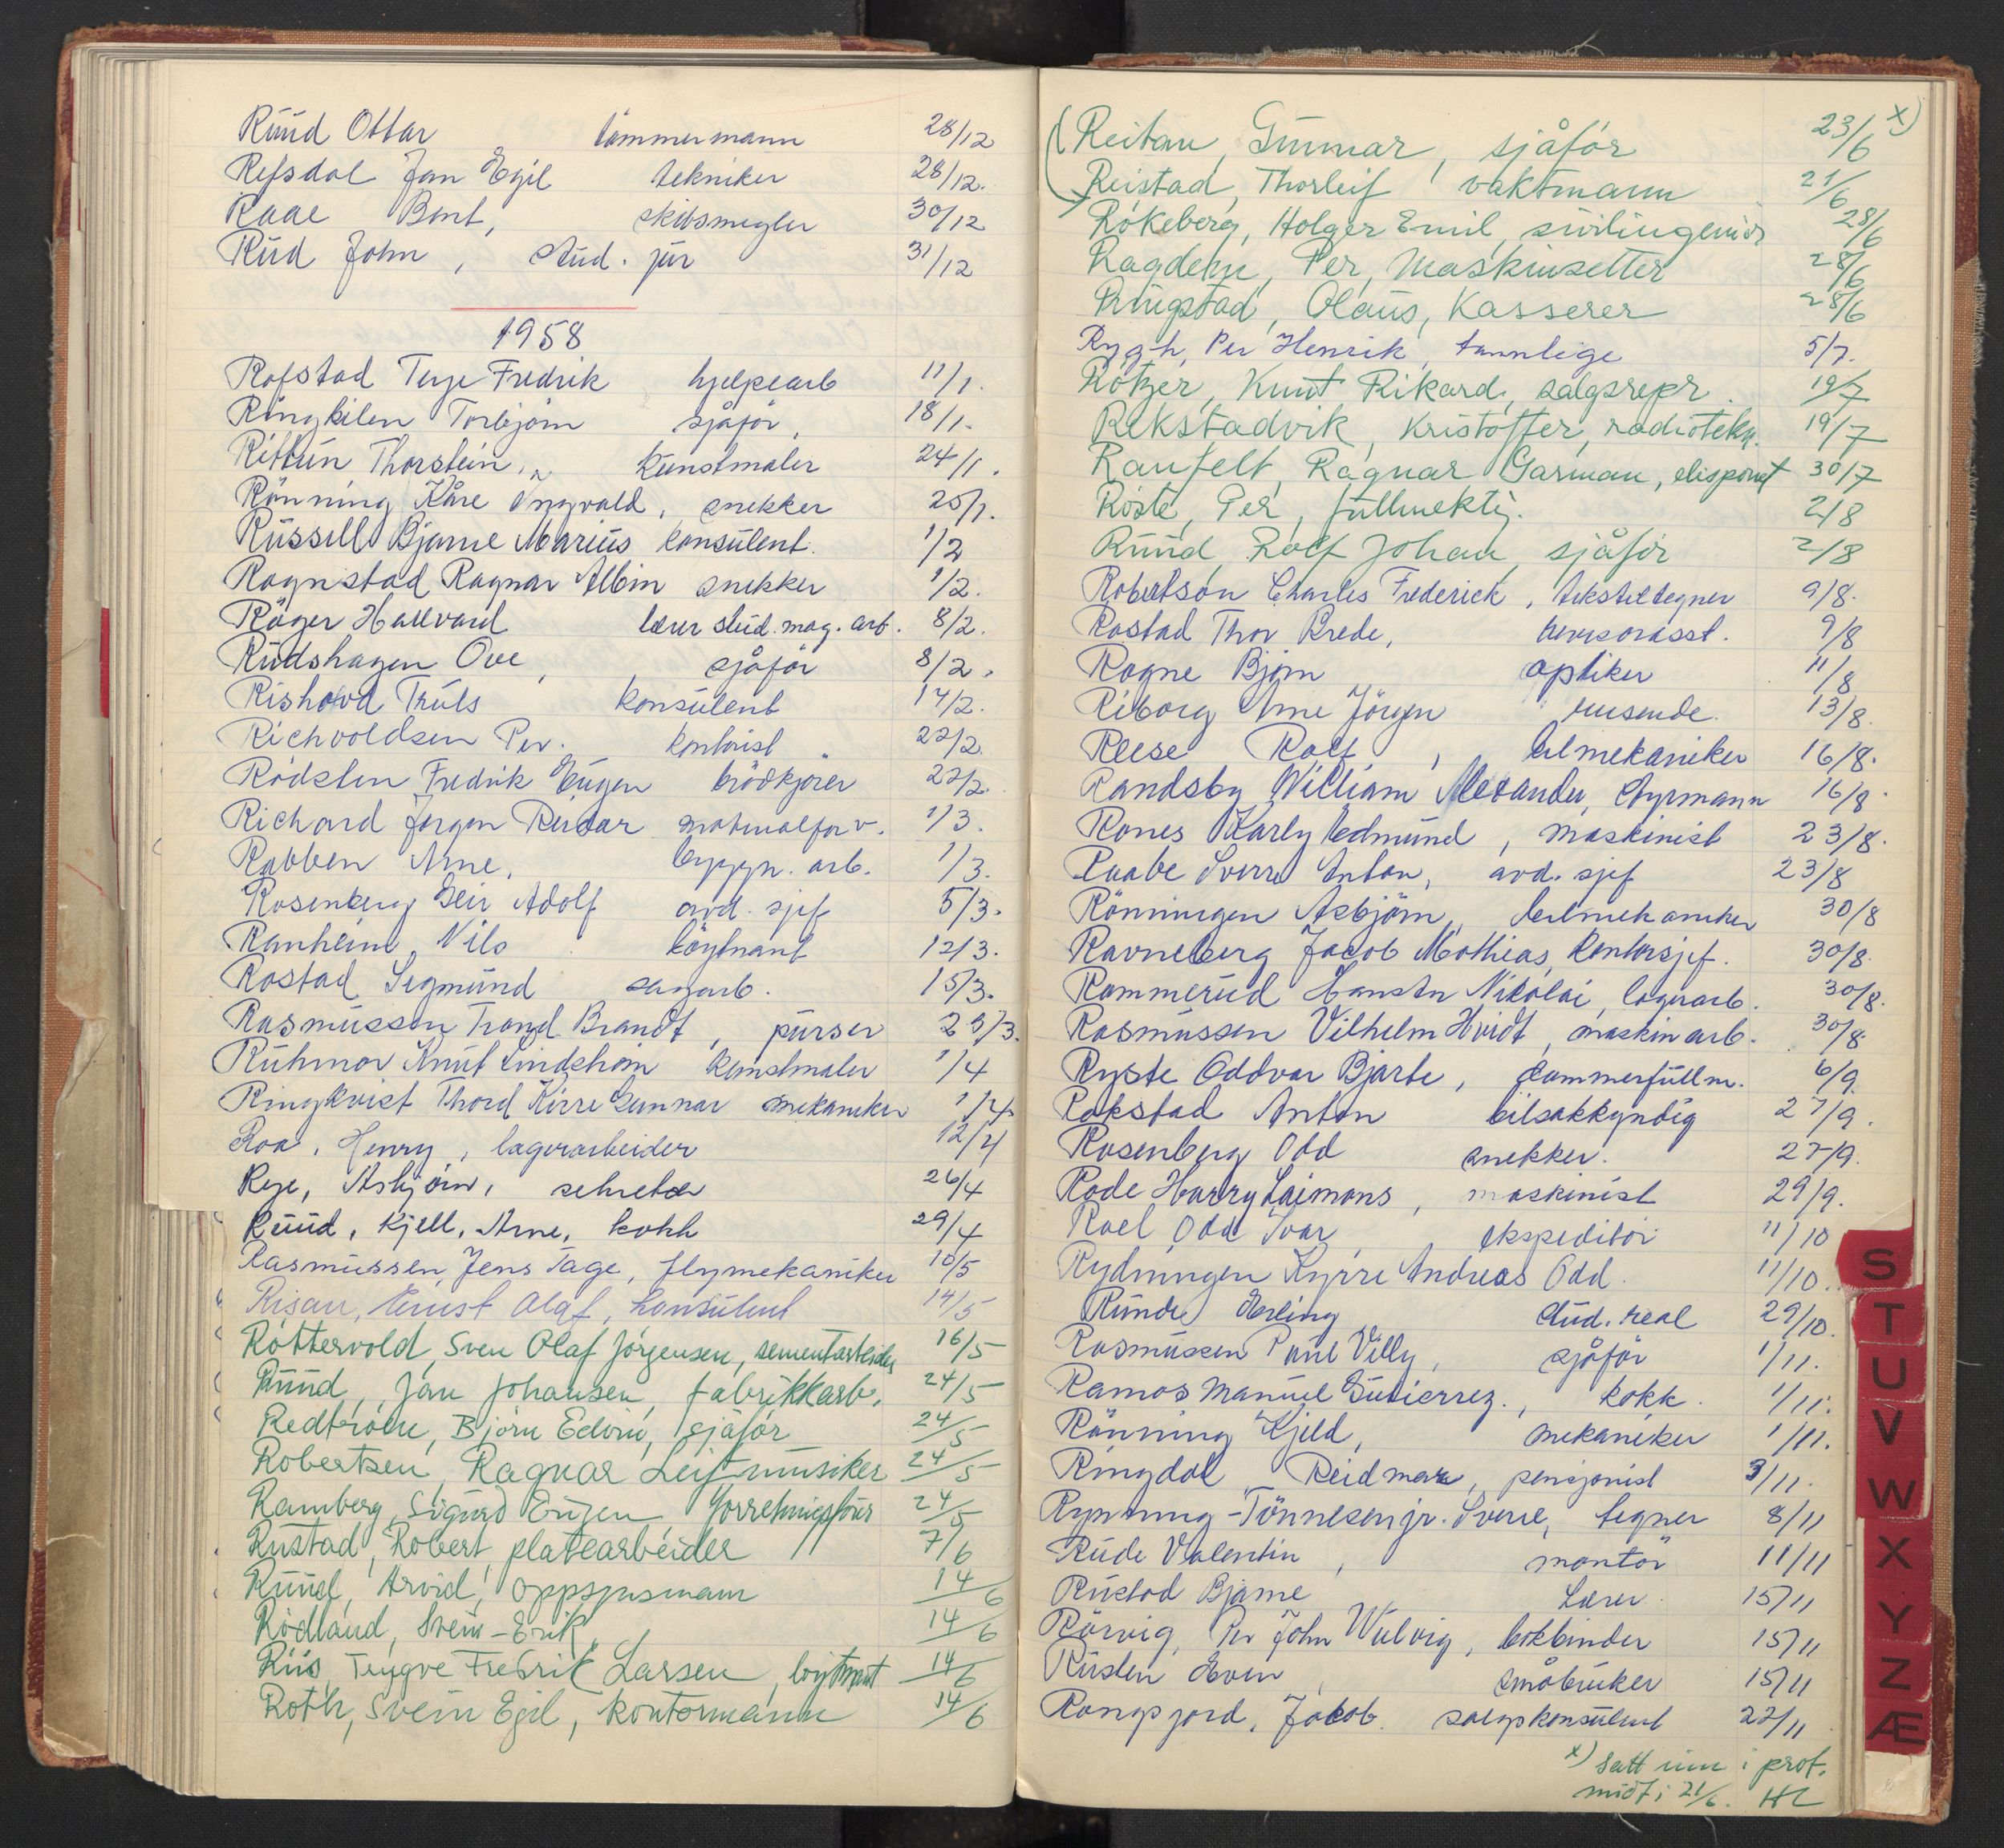 Ruud Ottar tömmermann 28/12
Refsdal Jan Egil tekniker 28/12.
Raae Bent, skibsmegler 30/12
Rud John, stud. jur 31/12
1958
Rafstad Terje Fredrik hjelpearb 11/1.
Ringkilen Torbjörn sjåför, 18/1.
Rittun Thorstein, kunstmaler 24/1.
Rönning Kåre Ingvald, snekker 25/1.
Russell Bjarne Marius konsulent. 1/2
Rognstad Ragnar Albin snekker 1/2.
Röger Hallvard lærer stud. mag. arb. 8/2.
Rudshagen Ove, sjåför 8/2.
Rishovd Truls konsulent 17/2.
Richvoldsen Per. kontorist 22/2.
Rödsten Fredrik Eugen brödkjörer 22/2.
Richard Jörgen Reidar materialforv. 1/3.
Rabben Arne, byggn. arb. 1/3.
Rosenberg Geir Adolf avd. sjef 5/3.
Ranheim Nils löytnant 12/3.
Rostad Sigmund sagarb. 15/3.
Rasmussen Trond Brandt, purser 23/3.
Ruhmor Knut Lindeheim kunstmaler 1/4
Ringkvist Thord Kirre Gunnar mekaniker 1/4
Roa, Henry, lagerarbeider 12/4
Reje, Asbjörn, sekretær 26/4
Ruud, Kjell, Arne, kokk 29/4
Rasmussen, Jens Tage, flymekaniker 10/5
Risan, Ernst Olaf, konsulent 14/5
Röttervold, Sven Olaf Jörgensen, sementarbeider 16/5
Ruud, Jan Johansen, fabrikkarb. 24/5
Redtröen, Björn Edvin, sjåför 24/5
Robertsen, Ragnar Leif musiker 24/5
Ramberg, Sigurd Eugen forretningsförer 24/5
Rustad, Robert, platearbeider 7/6
Ruud, Arvid, oppsynsmann 14/6
Rödland, Svein-Erik, 14/6
Riis, Trygve Fredrik Larsen, löytnant 14/6
Roth, Svein Egil, kontormann 14/6
(Reitan, Gunnar, sjåför 23/6 x)
Reistad, Thorleif vaktmann 21/6
Rökeberg, Holger Emil, sivilingeniör 28/6
Ragdehn, Per, Maskinsetter 28/6
Ringstad, Olaus, Kasserer 28/6
Rygh, Per Henrik, tannlege 5/7.
Rötzer, Kurt Rikard, salgsrepr. 19/7
Rekstadvik, Kristoffer, radiotekn. 19/7
Ranfelt, Ragnar Garman, disponent 30/7
Röste, Per, fullmektig. 2/8
Ruud, Rolf Johan, sjåför 2/8
Robertson Charles Frederick, tekstiltegner 9/8.
Rostad Thor Brede, revisorasst. 9/8
Rogne Björn optiker 11/8
Riborg Arne Jörgen reisende. 13/8.
Reese Rolf, bilmekaniker 16/8.
Randsby William Alexander, styrmann 16/8.
Rones Karly Edmund, maskinist 23/8.
Raabe Sverre Anton, avd. sjef 23/8
Rönningen Asbjörn, bilmekaniker 30/8
Ravneberg Jacob Mathias, kontorsjef. 30/8.
Rammerud Hansten Nikolai, lagerarb. 30/8.
Rasmussen Vilhelm Hvidt, maskinarb. 30/8.
Ryste Oddvar Bjarte, dommerfullm. 6/9.
Rakstad Anton bilsakkyndig 27/9.
Rosenberg Odd snekker. 27/9.
Rode Harry Laimons, maskinist 29/9.
Roel Odd Ivar, ekspeditör 11/10
Rydningen Kyrre Andreas Odd. 11/10.
Runde Erling stud. real 29/10.
Rasmussen Poul Villy, sjåför 1/11.
Ramos Manuel Gutierrez., kokk. 1/11.
Rönning Kjeld, mekaniker 1/11.
Ringdal Reidmar, pensjonist 3/11.
Rynning-Tönnesen jr. Sverre, tegner 8/11
Rude Valentin, montör 11/11
Rustad Bjarne Lærer. 15/11
Rörvig, Per John Wulvig, bokbinder 15/11
Rusten Even, småbruker 15/11
Rongsjord, Jacob. salgskonsulent 22/11
x) satt inn i prot.
midt i 21/6. HL
S
T
U
V
W
X
Y
Z
Æ